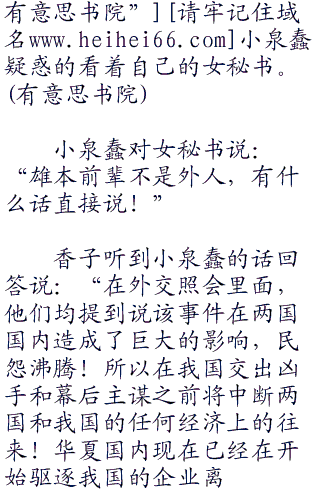 有意思书院”][请牢记住域
名www.heihei66.com]小泉蠢
疑惑的看着自己的女秘书。
(有意思书院)
小泉蠢对女秘书说：
“雄本前辈不是外人，有什
么话直接说！”
香子听到小泉蠢的话回
答说：“在外交照会里面，
他们均提到说该事件在两国
国内造成了巨大的影响，民
怨沸腾！所以在我国交出凶
手和幕后主谋之前将中断两
国和我国的任何经济上的往
来！华夏国内现在已经在开
始驱逐我国的企业离